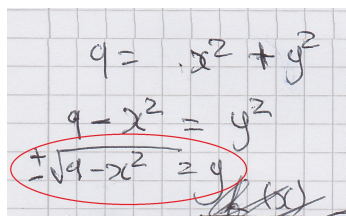 9 = x² + y²
9 - x² = y²
±√9-x² = y